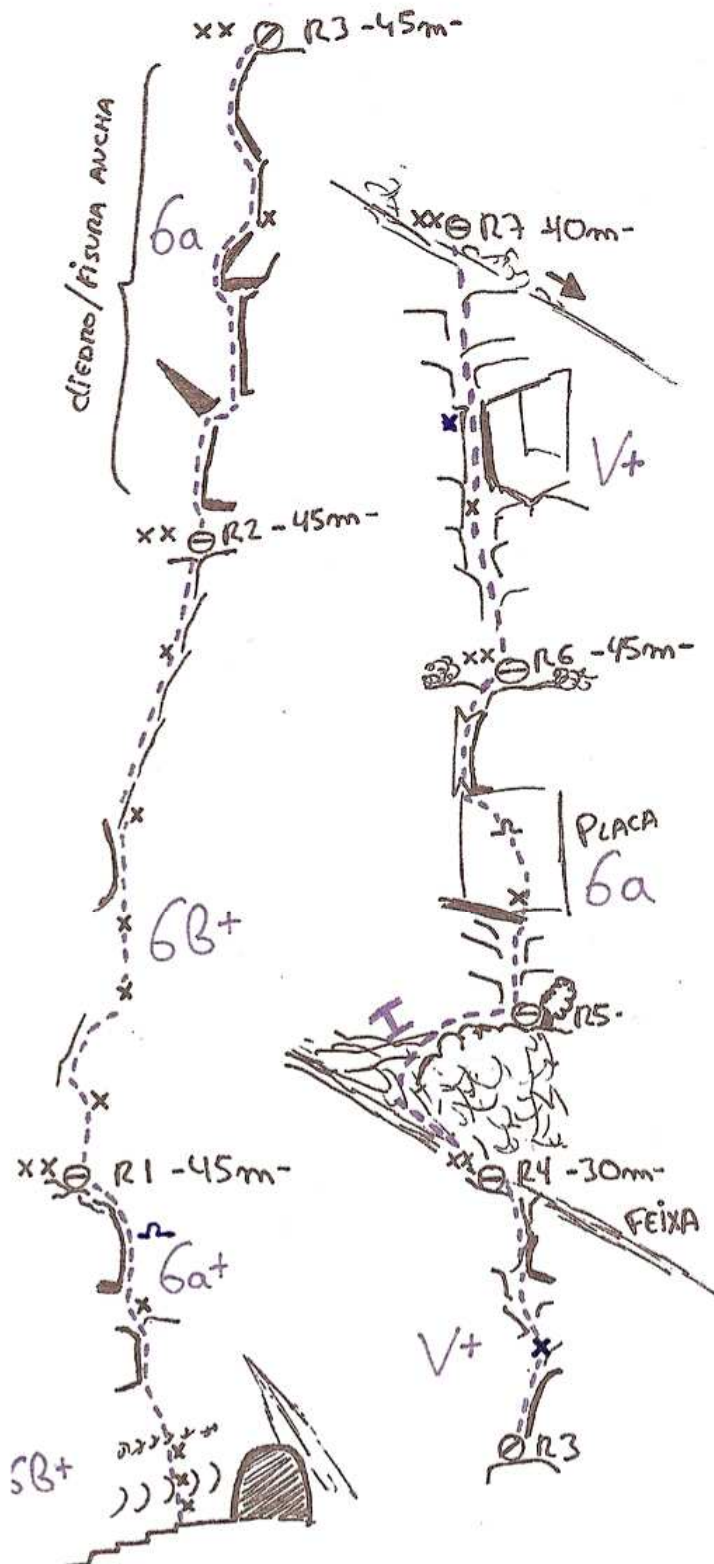 xx R3 -45m-
DIEDRO/FISURA ANCHA
6a
x
xx R2 -45m-
x
x
x
6B+
x
x
xx R1 -45m-
6a+
x
6B+
x
x
x
xx R7 -40m-
x
V+
x
xx R6 -45m-
PLACA
6a
x
I
R5-
xx R4 -30m-
FEIXA
V+
x
R3